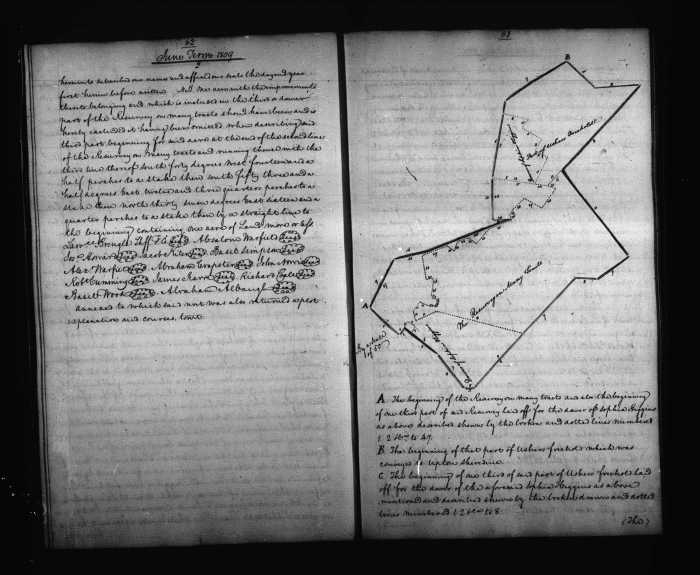 62
June Term 1809
hereunto subscribed our names and affixed our seals the day and year
first herein before written NB One acre with the improvements
thereto belonging and which is included in the third or dower
part of the Resurvey on many tracts should have been and is
hereby excluded it having been omitted when describing said
third part beginning for said acre at the end of the second line
of the Resurvey on many tracts and running thence with the
third line thereof South forty degrees West fourteen and a
half perches to a stake then South fifty three and a
half degrees East twelve and three quarters perches to a
stake then north thirty seven degrees East sixteen and a
quarter perches to a stake then by a straight line to
the beginning containing one acre of Land more or less
Seal Absalom Warfield Seal
Seal Basil Simpson Seal
Alex Warfield Seal Abraham Seal John Norris Seal
Robt Cumming Seal James Seal Richard Coale Seal
Basil Wood Seal Abraham Albaugh Seal
annexed to which said writ was also returned a plot
explanation and courses, towit
63
B
The Resurvey on many tracts
A
A The beginning of the Resurvey on many tracts and also the beginning
of one third part of said Resurvey laid off for the dower of Sophia Higgins
as above described shewn by the broken and dotted lines numbered
1. 2 &c to 47.
B. The beginning of that part of Ushers which was
conveyed to Upton Sheredine
C. The beginning of one third of said part of Ushers laid
off for the dower of the aforesaid Sophia Higgins as above
mentioned and described shewn by the broken drawn and dotted
lines numbered 1. 2 &c to 8
(Tho.)